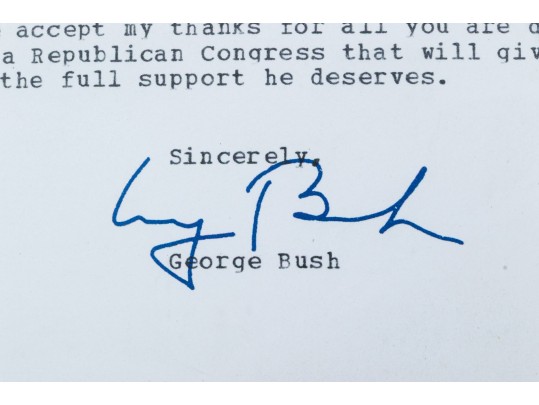 accept my thanks for all you are
a Republican Congress that will giv
the full support he deserves.
Sincerely,
Gy Bush
George Bush